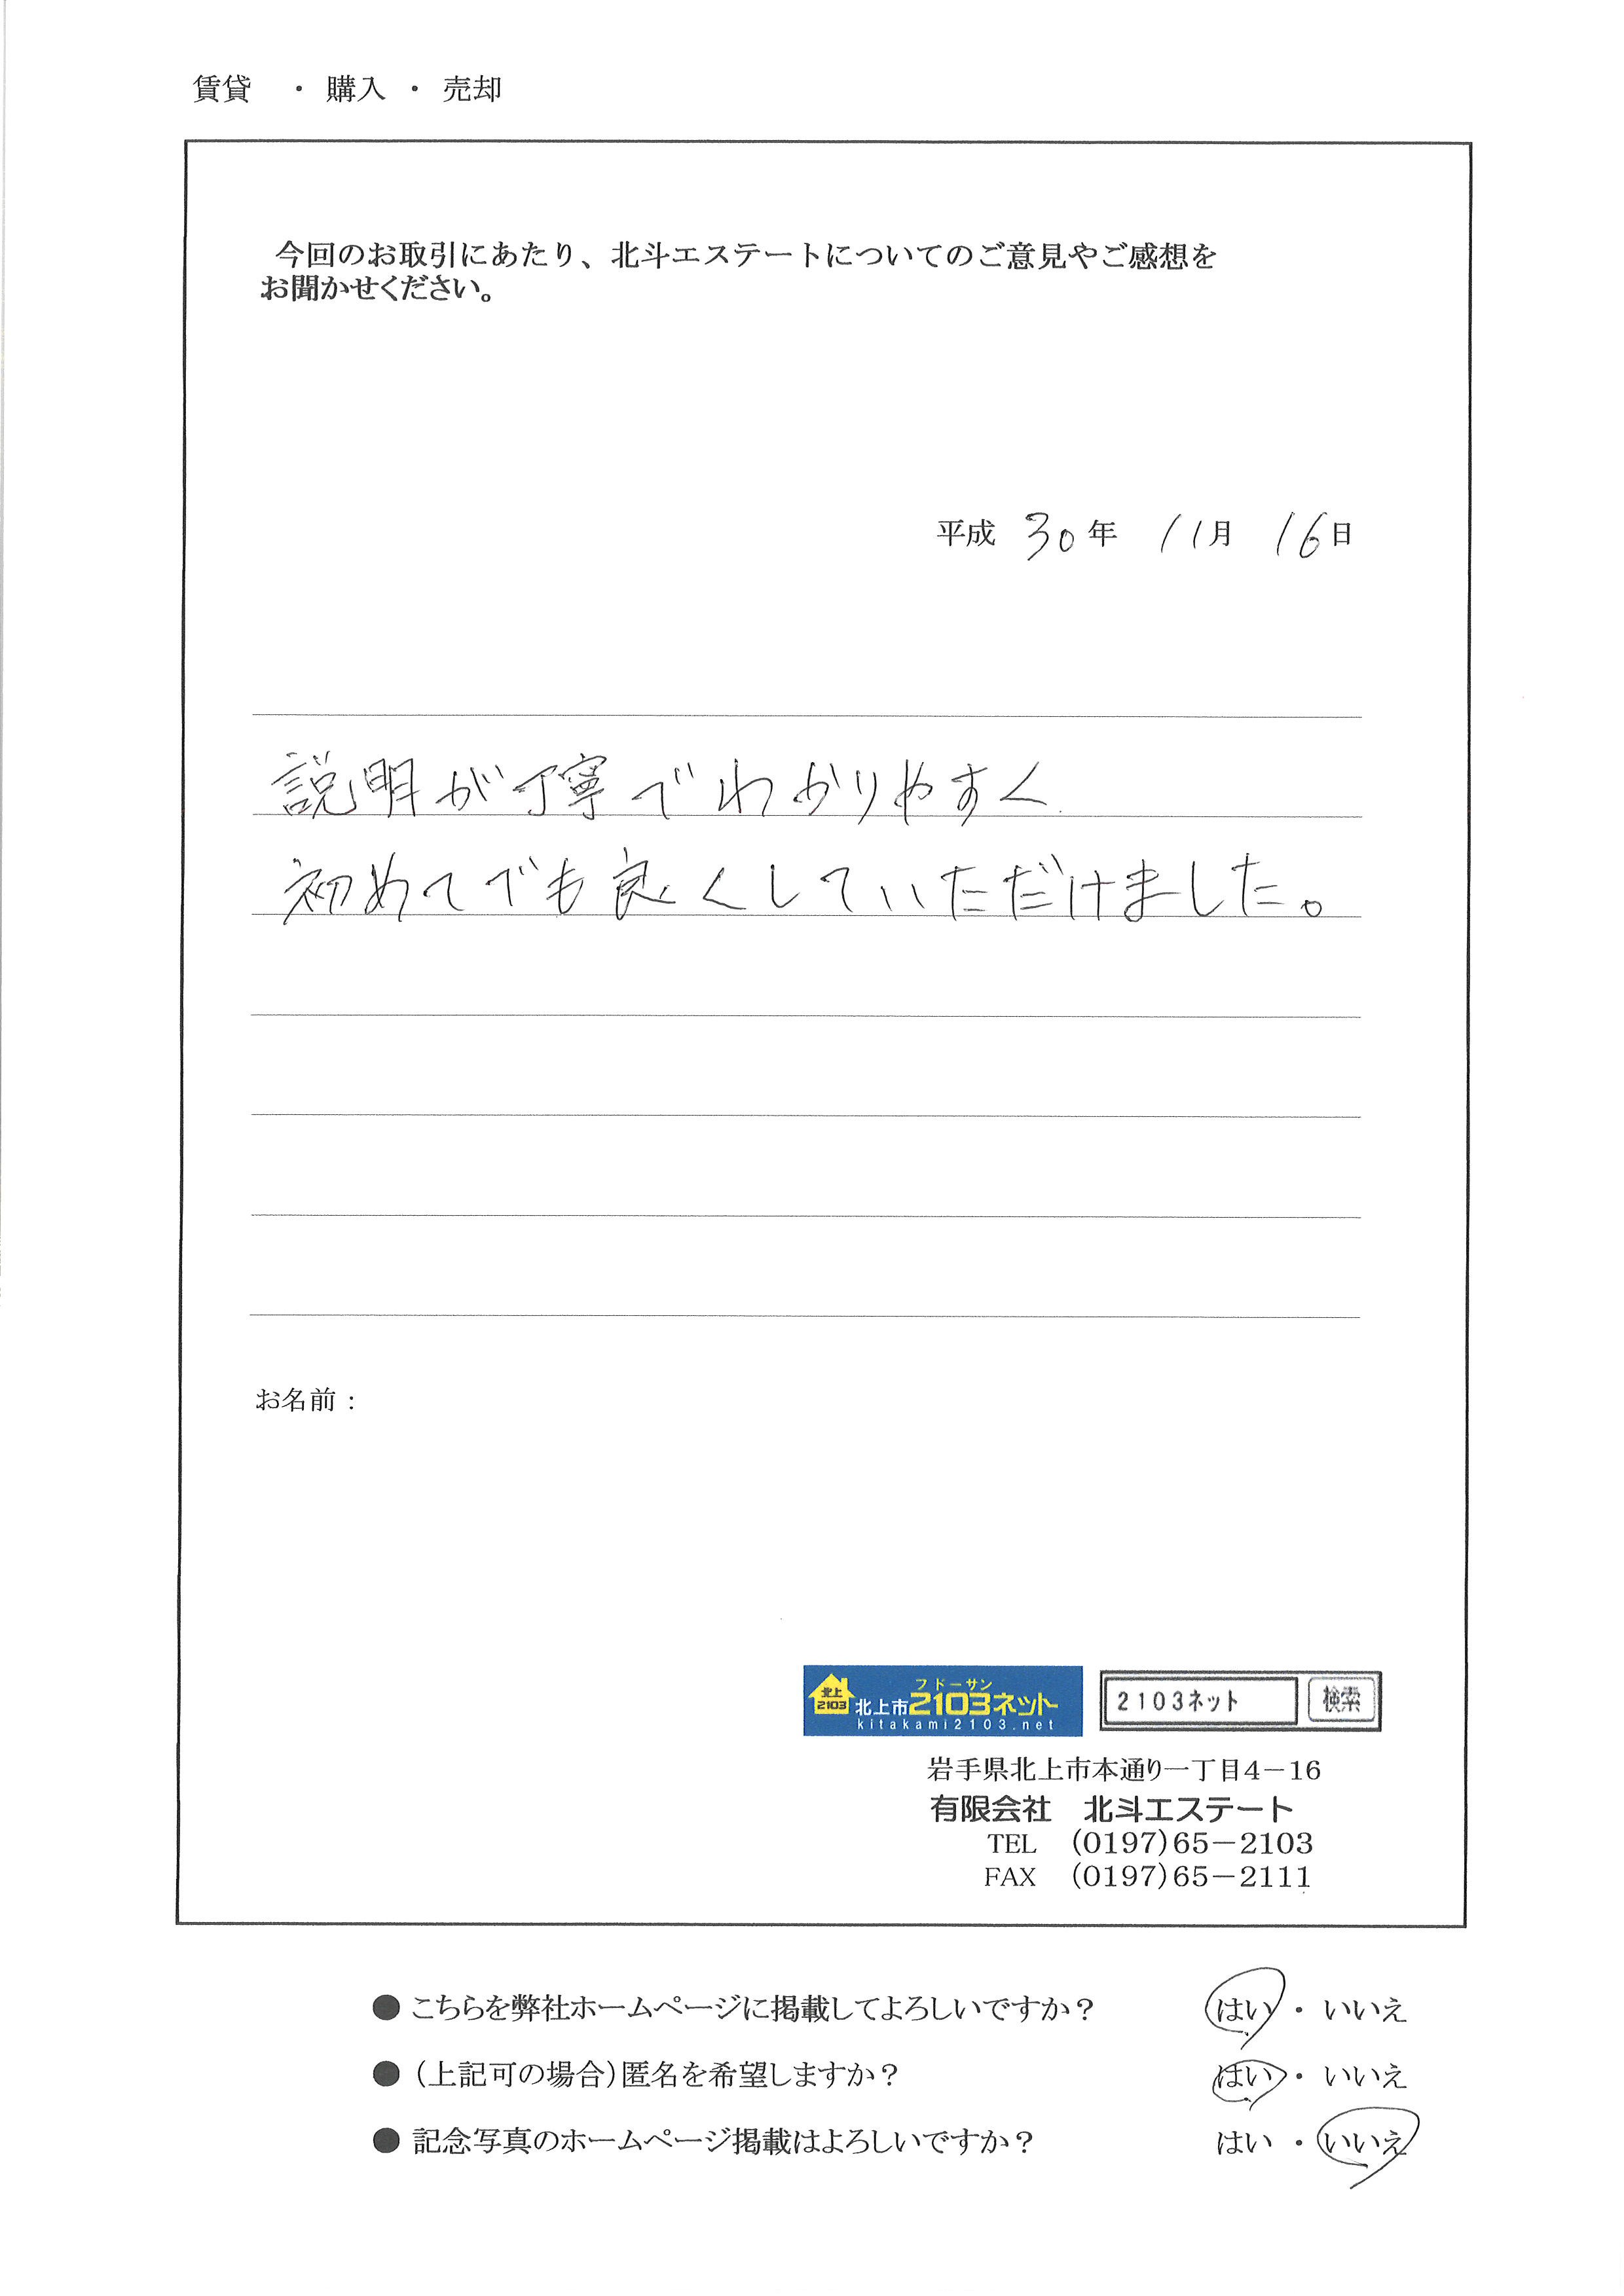 賃貸 ・ 購入 ・ 売却
今回のお取引にあたり、北斗エステートについてのご意見やご感想を
お聞かせください。
平成 30年 11月 16日
説明が丁寧でわかりやすく
初めてでも良くしていただけました。
お名前：
北上
2103
フドーサン
北上市2103ネット
kitakami2103.net
2103ネット 検索
岩手県北上市本通り一丁目4－16
有限会社　北斗エステート
TEL （0197）65－2103
FAX （0197）65－2111
● こちらを弊社ホームページに掲載してよろしいですか？ はい ・ いいえ
● （上記可の場合）匿名を希望しますか？ はい ・ いいえ
● 記念写真のホームページ掲載はよろしいですか？ はい ・ いいえ